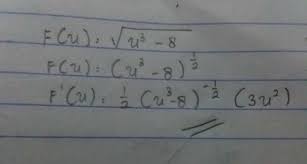 F(u) = √(u³ - 8)
F(u) = (u³ - 8)^(1/2)
F'(u) = 1/2 (u³-8)^(-1/2) (3u²)